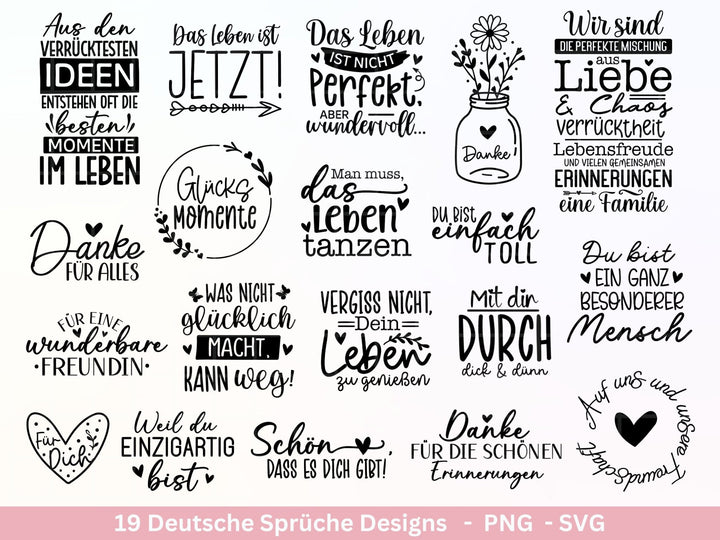 Aus den
VERRÜCKTESTEN
IDEEN
ENTSTEHEN OFT DIE
besten
MOMENTE
IM LEBEN
Das Leben ist
JETZT!
Das Leben
IST NICHT
Perfekt,
ABER
wundervoll...
Danke!
Wir sind
DIE PERFEKTE MISCHUNG
aus
Liebe
& Chaos
verrücktheit
Lebensfreude
UND VIELEN GEMEINSAMEN
ERINNERUNGEN
eine Familie
Glücks
Momente
Man muss,
das
LEBEN
tanzen
DU BIST
einfach
TOLL
Danke
FÜR ALLES
Du bist
EIN GANZ
BESONDERER
Mensch
FÜR EINE
wunderbare
FREUNDIN
WAS NICHT
glücklich
MACHT,
KANN weg!
VERGISS NICHT,
Dein
Leben
zu genießen
Mit dir
DURCH
dick & dünn
Für
Dich
Weil du
EINZIGARTIG
bist
Schön,
DASS ES DICH GIBT!
Danke
FÜR DIE SCHÖNEN
Erinnerungen
Auf uns und unsere Freundschaft
19 Deutsche Sprüche Designs - PNG - SVG